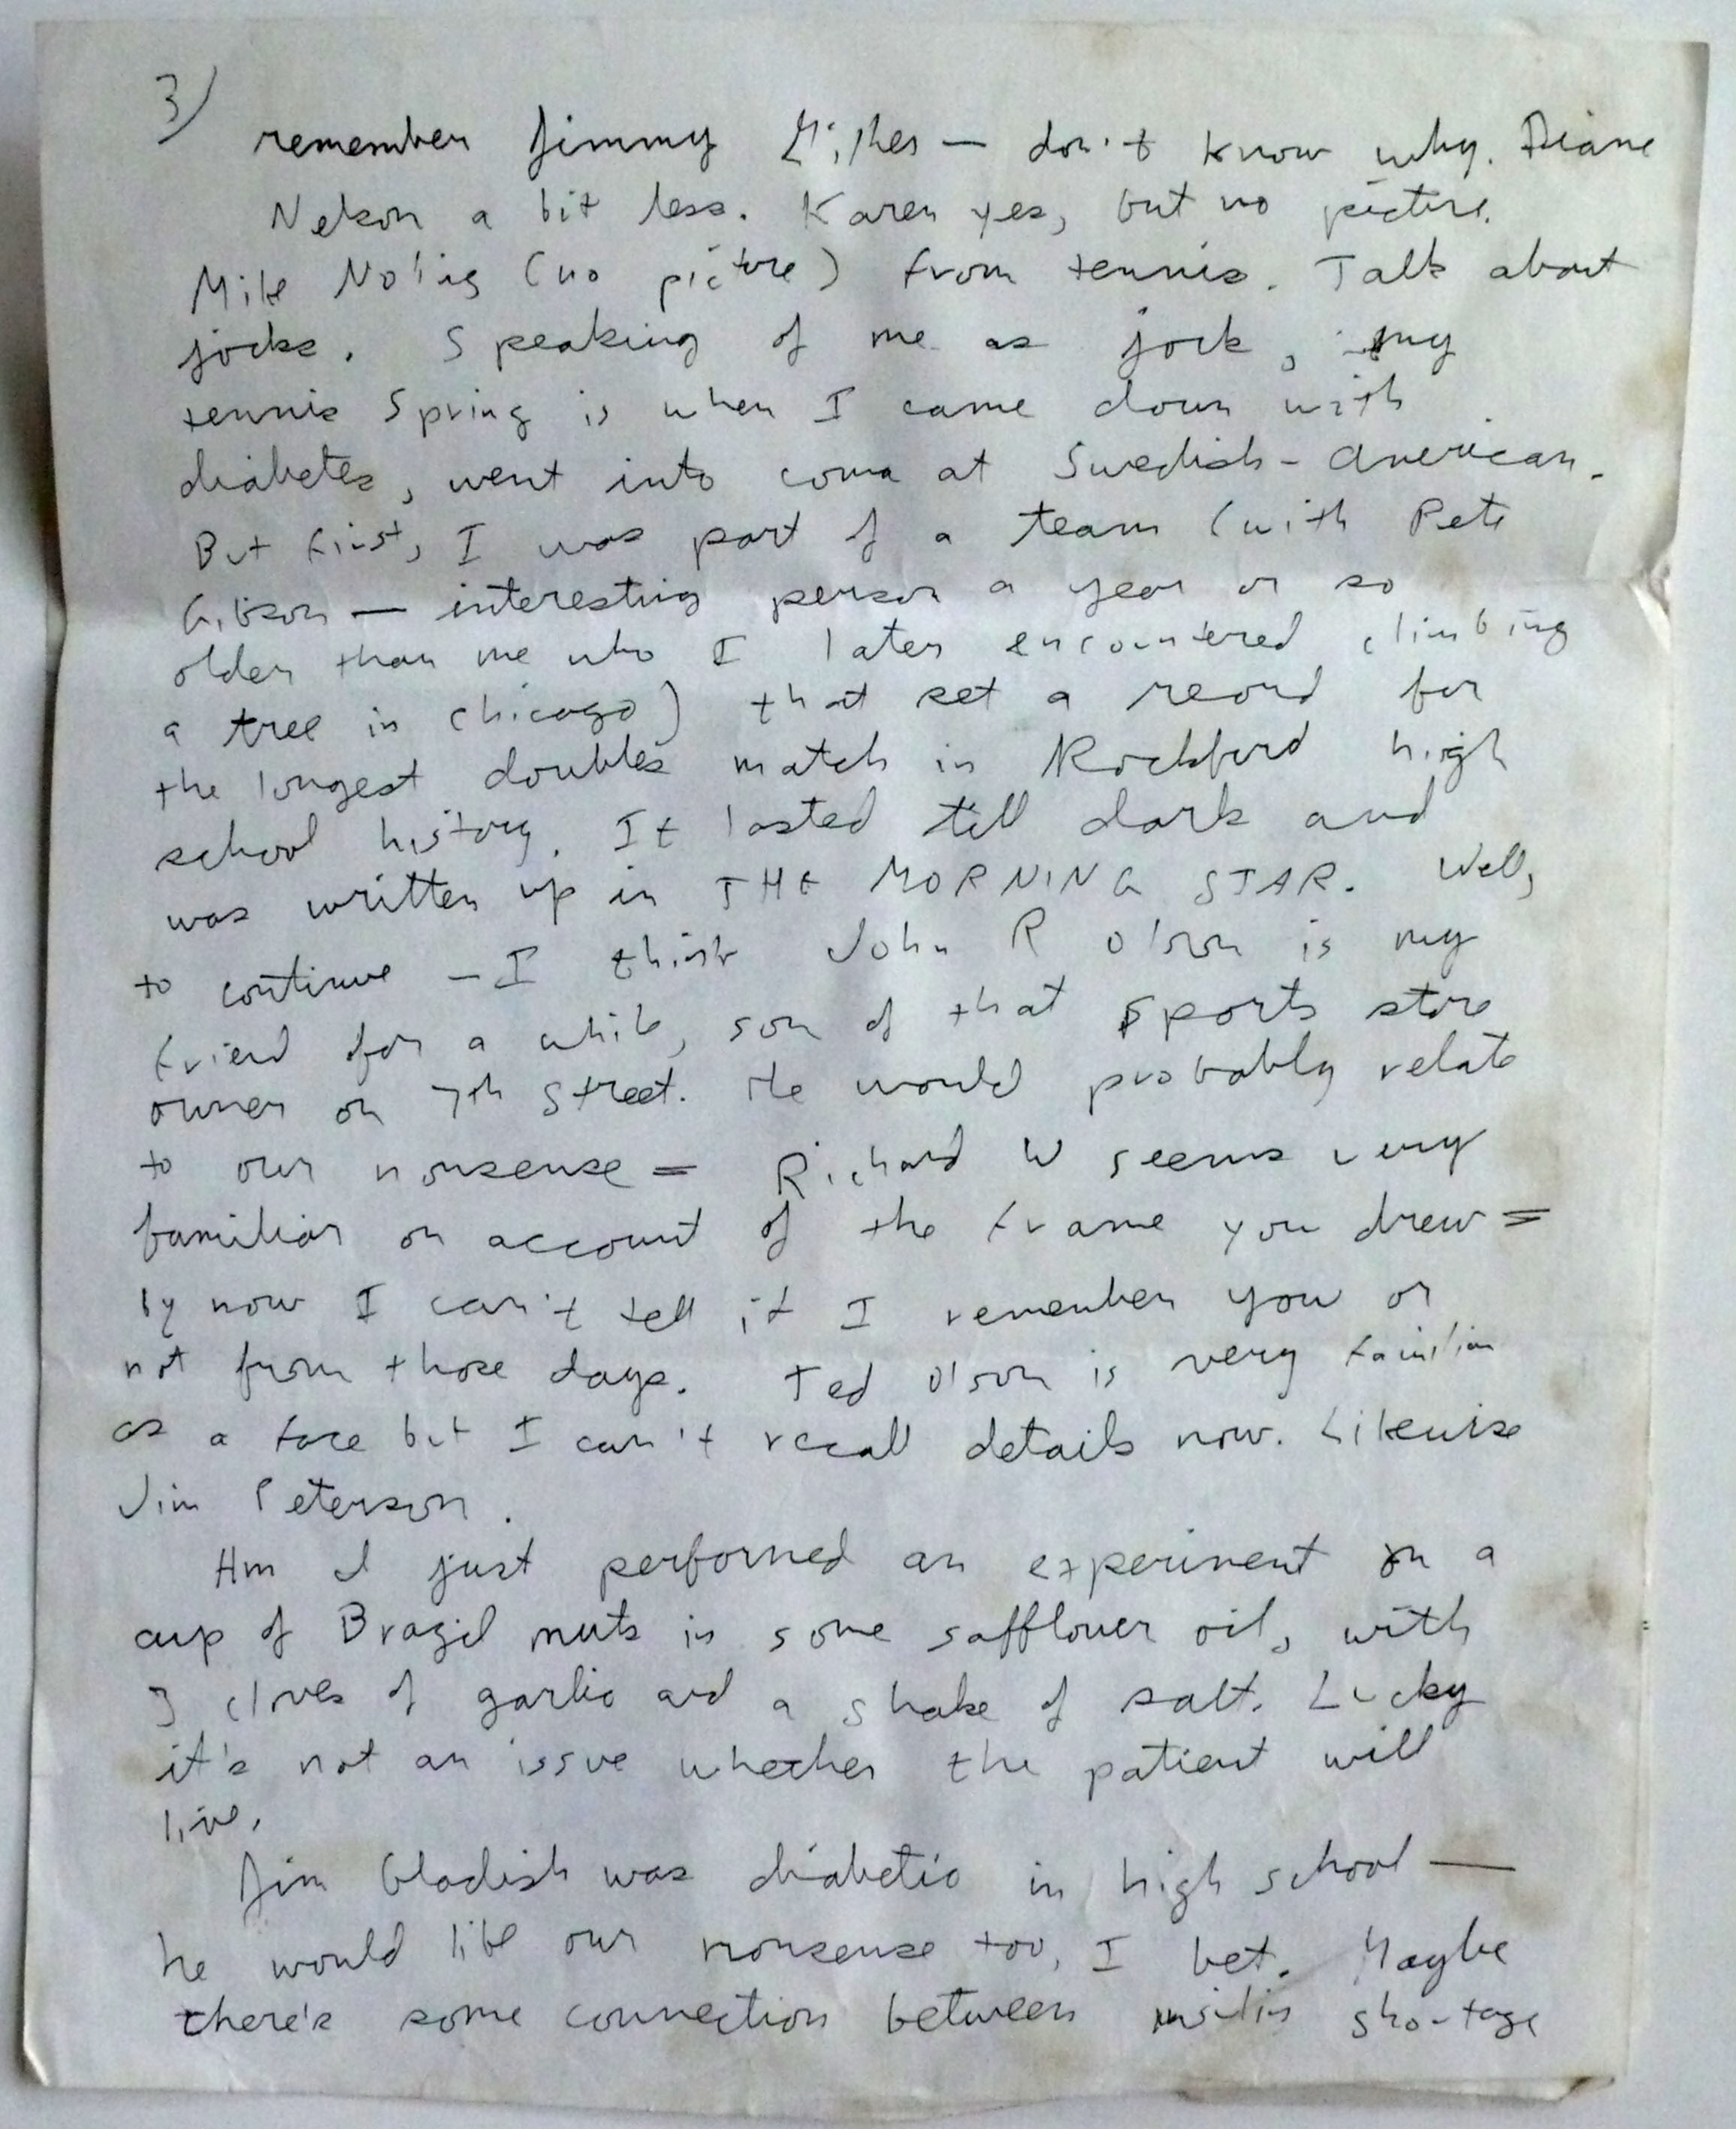 3)
remember Jimmy — don't know why. Diane
Nelson a bit less. Karen yes, but no picture.
Mike Noling (no picture) from tennis. Talk about
jocks. Speaking of me as jock, my
tennis spring is when I came down with
diabetes, went into coma at Swedish-American.
But first, I was part of a team (with Pete
Gibson — interesting person a year or so
older than me who I later encountered climbing
a tree in Chicago) that set a record for
the longest doubles match in Rockford high
school history. It lasted till dark and
was written up in THE MORNING STAR. Well,
to continue — I think John R Olson is my
friend for a while, son of that sports store
owner on 7th Street. He would probably relate
to our nonsense = Richard W seems very
familiar on account of the frame you drew =
by now I can't tell if I remember you or
not from those days. Ted Olson is very familiar
as a face but I can't recall details now. Likewise
Jim Peterson.
Hm I just performed an experiment on a
cup of Brazil nuts in some safflower oil, with
3 cloves of garlic and a shake of salt. Lucky
it's not an issue whether the patient will
live.
Jim Gladish was diabetic in high school —
he would like our nonsense too, I bet. Maybe
there's some connection between insulin shortage